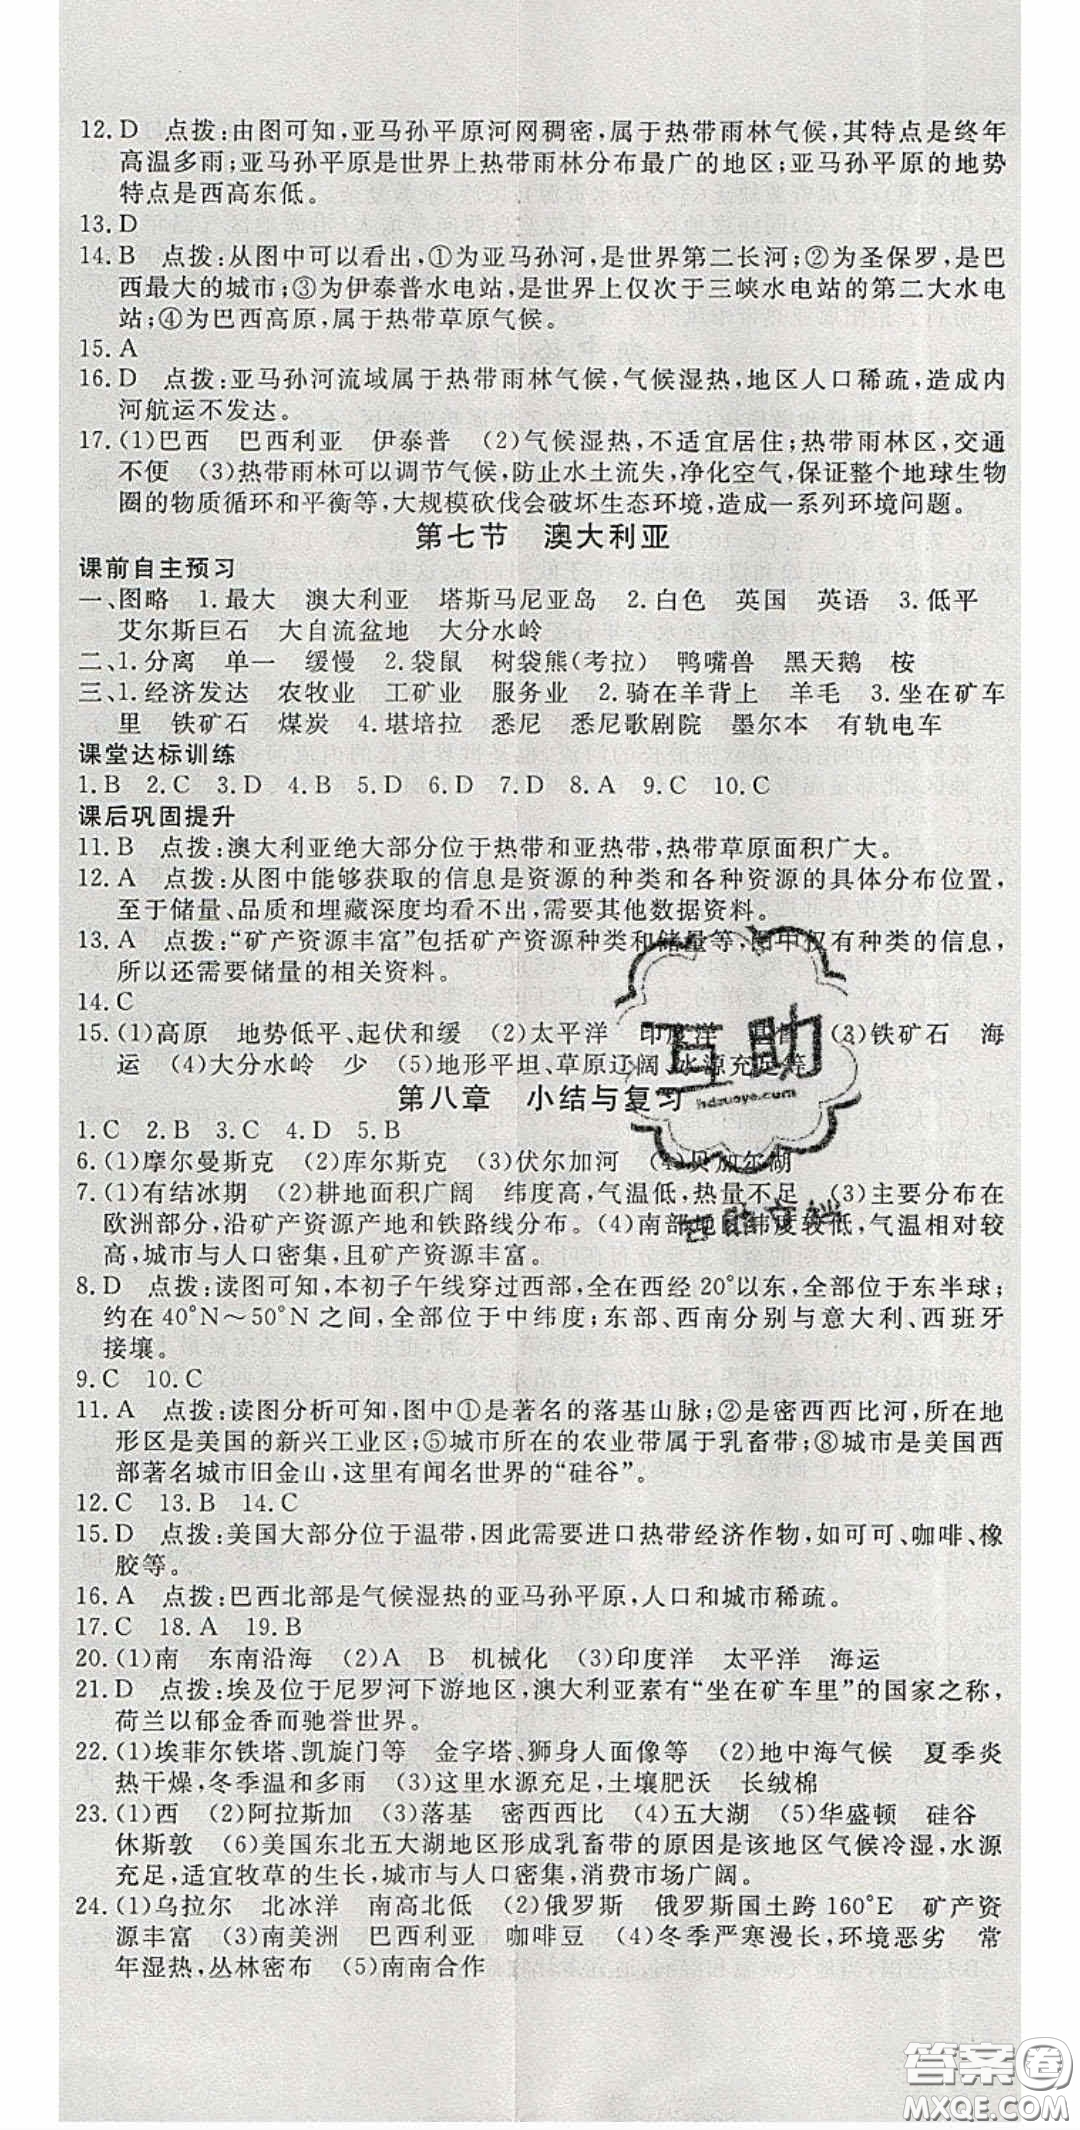 12. D 点拨:由图可知,亚马孙平原河网稠密,属于热带雨林气候,其特点是终年
高温多雨;亚马孙平原是世界上热带雨林分布最广的地区;亚马孙平原的地势
特点是西高东低。
13. D
14. B 点拨:从图中可以看出,①为亚马孙河,是世界第二长河;②为圣保罗,是巴
西最大的城市;③为伊泰普水电站,是世界上仅次于三峡水电站的第二大水电
站;④为巴西高原,属于热带草原气候。
15. A
16. D 点拨:亚马孙河流域属于热带雨林气候,气候湿热,地区人口稀疏,造成内
河航运不发达。
17. (1)巴西 巴西利亚 伊泰普 (2)气候湿热,不适宜居住;热带雨林区,交通
不便 (3)热带雨林可以调节气候,防止水土流失,净化空气,保证整个地球生物
圈的物质循环和平衡等,大规模砍伐会破坏生态环境,造成一系列环境问题。
第七节 澳大利亚
课前自主预习
一、图略 1. 最大 澳大利亚 塔斯马尼亚岛 2. 白色 英国 英语 3. 低平
艾尔斯巨石 大自流盆地 大分水岭
二、1. 分离 单一 缓慢 2. 袋鼠 树袋熊(考拉) 鸭嘴兽 黑天鹅 桉
三、1. 经济发达 农牧业 工矿业 服务业 2. 骑在羊背上 羊毛 3. 坐在矿车
里 铁矿石 煤炭 4. 堪培拉 悉尼 悉尼歌剧院 墨尔本 有轨电车
课堂达标训练
1. B 2. C 3. D 4. B 5. D 6. D 7. D 8. A 9. C 10. C
课后巩固提升
11. B 点拨:澳大利亚绝大部分位于热带和亚热带,热带草原面积广大。
12. A 点拨:从图中能够获取的信息是资源的种类和各种资源的具体分布位置,
至于储量、品质和埋藏深度均看不出,需要其他数据资料。
13. A 点拨:“矿产资源丰富”包括矿产资源种类和储量等,图中仅有种类的信息,
所以还需要储量的相关资料。
14. C
15. (1)高原 地势低平、起伏和缓 (2)太平洋 印度洋 (3)铁矿石 海
运 (4)大分水岭 少 (5)地形平坦、草原辽阔、水源充足等
互助
hdzuoye.com
第八章 小结与复习
1. C 2. B 3. C 4. D 5. B
6. (1)摩尔曼斯克 (2)库尔斯克 (3)伏尔加河 (4)贝加尔湖
7. (1)有结冰期 (2)耕地面积广阔 纬度高,气温低,热量不足 (3)主要分布在
欧洲部分,沿矿产资源产地和铁路线分布。(4)南部地区纬度较低,气温相对较
高,城市与人口密集,且矿产资源丰富。
8. D 点拨:读图可知,本初子午线穿过西部,全在西经 20°以东,全部位于东半球;
约在 40°N～50°N 之间,全部位于中纬度;东部、西南分别与意大利、西班牙
接壤。
9. C 10. C
11. A 点拨:读图分析可知,图中①是著名的落基山脉;②是密西西比河,所在地
形区是美国的新兴工业区;⑤城市所在的农业带属于乳畜带;⑧城市是美国西
部著名城市旧金山,这里有闻名世界的“硅谷”。
12. C 13. B 14. C
15. D 点拨:美国大部分位于温带,因此需要进口热带经济作物,如可可、咖啡、橡
胶等。
16. A 点拨:巴西北部是气候湿热的亚马孙平原,人口和城市稀疏。
17. C 18. A 19. B
20. (1)南 东南沿海 (2)A B 机械化 (3)印度洋 太平洋 海运
21. D 点拨:埃及位于尼罗河下游地区,澳大利亚素有“坐在矿车里”的国家之称,
荷兰以郁金香而驰誉世界。
22. (1)埃菲尔铁塔、凯旋门等 金字塔、狮身人面像等 (2)地中海气候 夏季炎
热干燥,冬季温和多雨 (3)这里水源充足,土壤肥沃 长绒棉
23. (1)西 (2)阿拉斯加 (3)落基 密西西比 (4)五大湖 (5)华盛顿 硅谷
休斯敦 (6)美国东北五大湖地区形成乳畜带的原因是该地区气候冷湿,水源
充足,适宜牧草的生长,城市与人口密集,消费市场广阔。
24. (1)乌拉尔 北冰洋 南高北低 (2)俄罗斯 俄罗斯国土跨 160°E 矿产资
源丰富 (3)南美洲 巴西利亚 咖啡豆 (4)冬季严寒漫长,环境恶劣 常
年湿热,丛林密布 (5)南南合作
答案圈
MXQE.COM